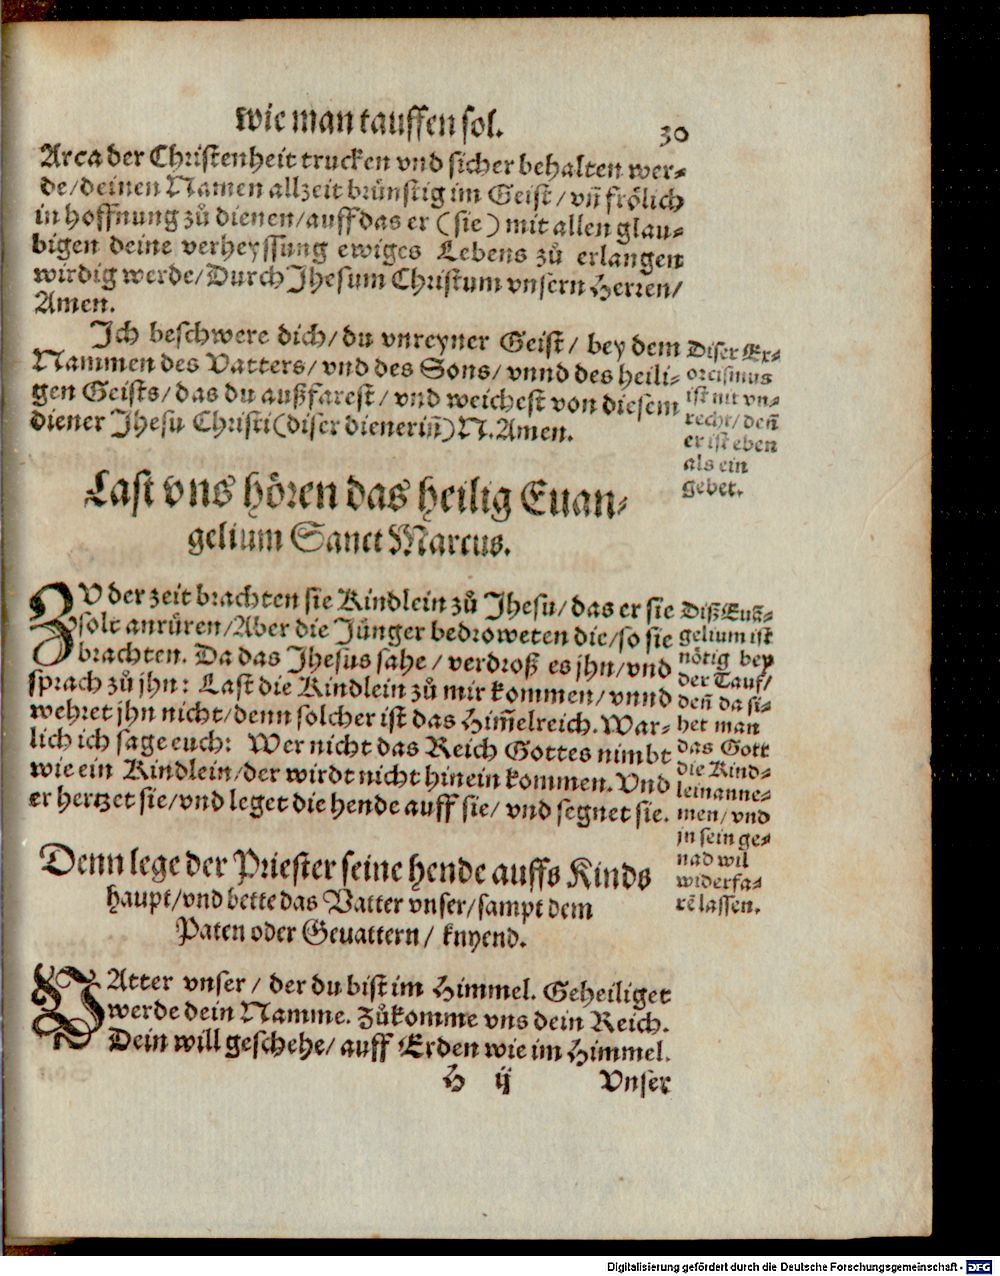 wie man tauffen sol.
30
Arca der Christenheit trucken vnd sicher behalten wer-
de/deinen Namen allzeit brünstig im Geist/ vñ frölich
in hoffnung zů dienen/auff das er (sie) mit allen glau-
bigen deine verheyssung ewiges Lebens zů erlangen
wirdig werde/Durch Jhesum Christum vnsern Herren/
Amen.
Ich beschwere dich/du vnreyner Geist/ bey dem
Nammen des Vatters/ vnd des Sons/ vnnd des heili-
gen Geists/das du außfarest/ vnd weichest von diesem
diener Jhesu Christi(diser dieneriñ)N.Amen.
Diser Ex-
orcismus
ist nit vn-
recht/ deñ
er ist eben
als ein
gebet.
Last vns hören das heilig Euan-
gelium Sanct Marcus.
ZV der zeit brachten sie Kindlein zů Jhesu/das er sie
solt anrüren/Aber die Jünger bedroweten die/so sie
brachten. Da das Jhesus sahe/ verdroß es jhn/vnd
sprach zů jhn: Last die Kindlein zů mir kommen/ vnnd
wehret jhn nicht/denn solcher ist das Him̃elreich. War-
lich ich sage euch: Wer nicht das Reich Gottes nimbt
wie ein Kindlein/der wirdt nicht hinein kommen. Vnd
er hertzet sie/vnd leget die hende auff sie/ vnd segnet sie.
Diß Euã-
gelium ist
nötig bey
der Tauf/
deñ da si-
het man
das Gott
die Kind-
lein anne-
men/ vnd
jn sein ge-
nad wil
widerfa-
rẽ lassen.
Denn lege der Priester seine hende auffs Kinds
haupt/vnd bette das Vatter vnser/sampt dem
Paten oder Geuattern/ knyend.
VAtter vnser/ der du bist im Himmel. Geheiliget
werde dein Namme. Zůkomme vns dein Reich.
Dein will geschehe/ auff Erden wie im Himmel.
H ij Vnser
Digitalisierung gefördert durch die Deutsche Forschungsgemeinschaft - DFG